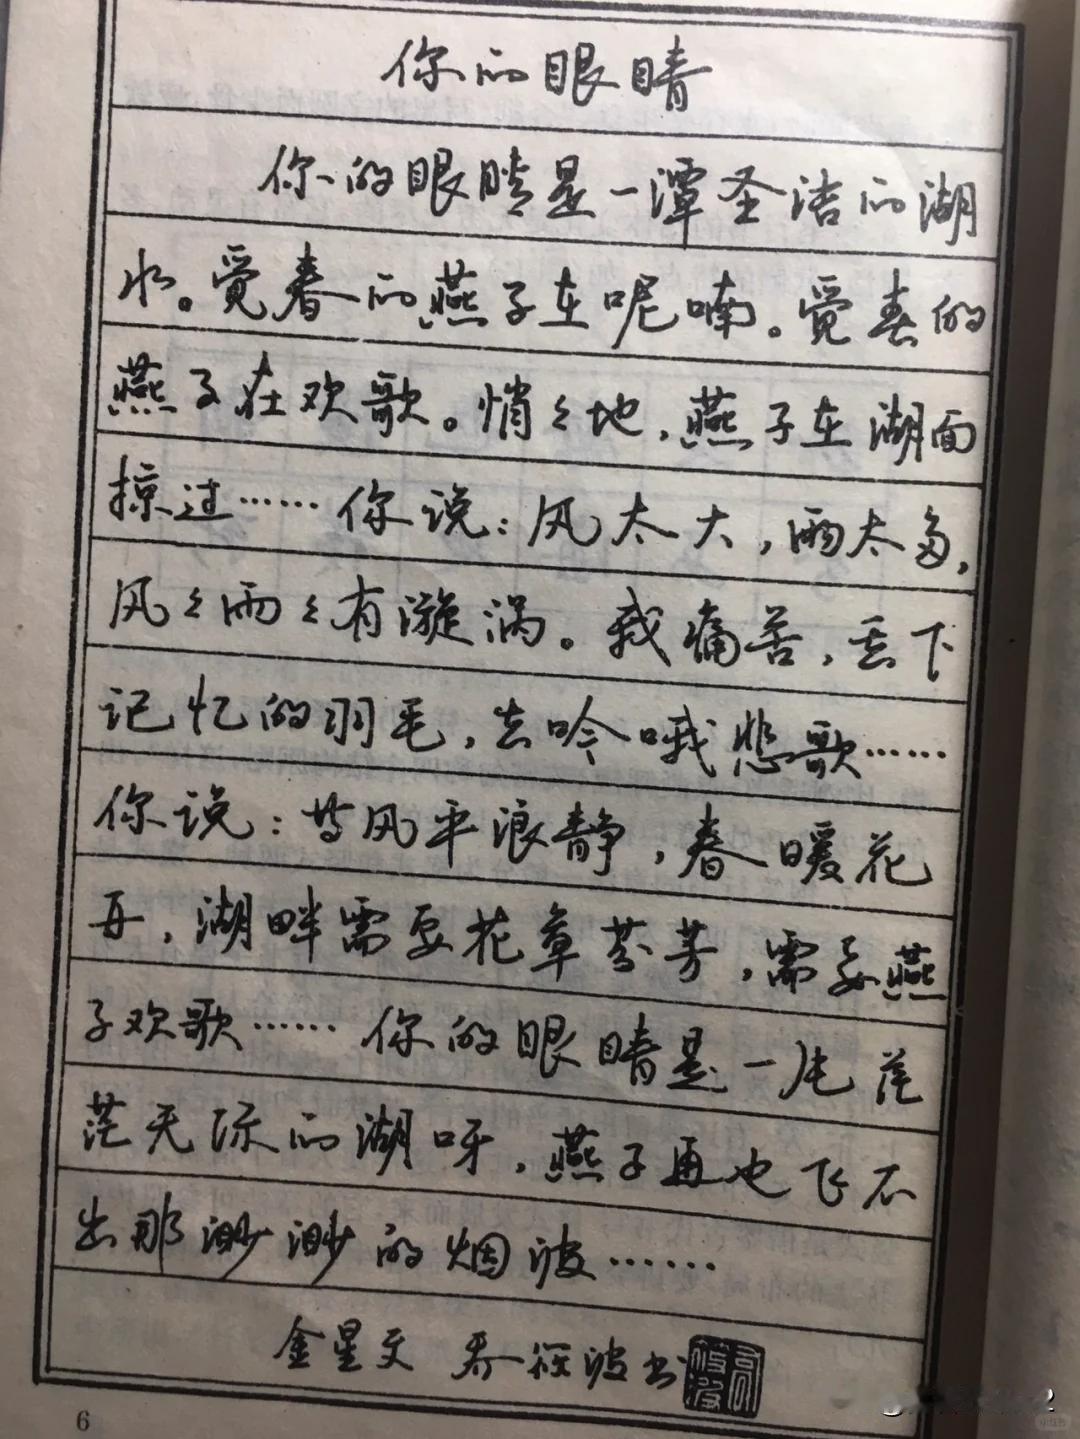 你的眼睛
你的眼睛是一潭圣洁的湖
水。觅春的燕子在呢喃。觅春的
燕子在欢歌。悄々地，燕子在湖面
掠过……你说：风太大，雨太多，
风々雨々有漩涡。我痛苦，丢下
记忆的羽毛，去吟哦悲歌……
你说：当风平浪静，春暖花
开，湖畔需要花草芬芳，需要燕
子欢歌……你的眼睛是一片茫
茫无际的湖呀，燕子再也飞不
出那渺渺的烟波……
金星文 波书
6